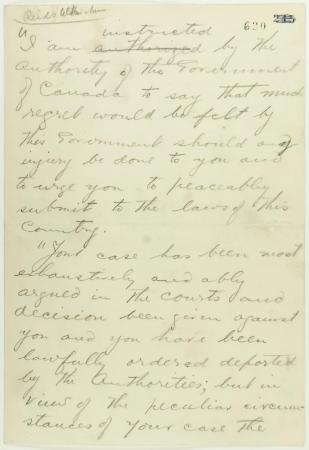 630
instructed
"I am authorized by the
Authority of the Government
of Canada to say that much
regret would be felt by
this Government should any
injury be done to you and
to urge you to peaceably
submit to the laws of this
Country.
"Your case has been most
exhaustively and ably
argued in the Courts and
decision been given against
you and you have been
lawfully ordered deported
by the Authorities; but in
view of the peculiar circum-
stances of your case the